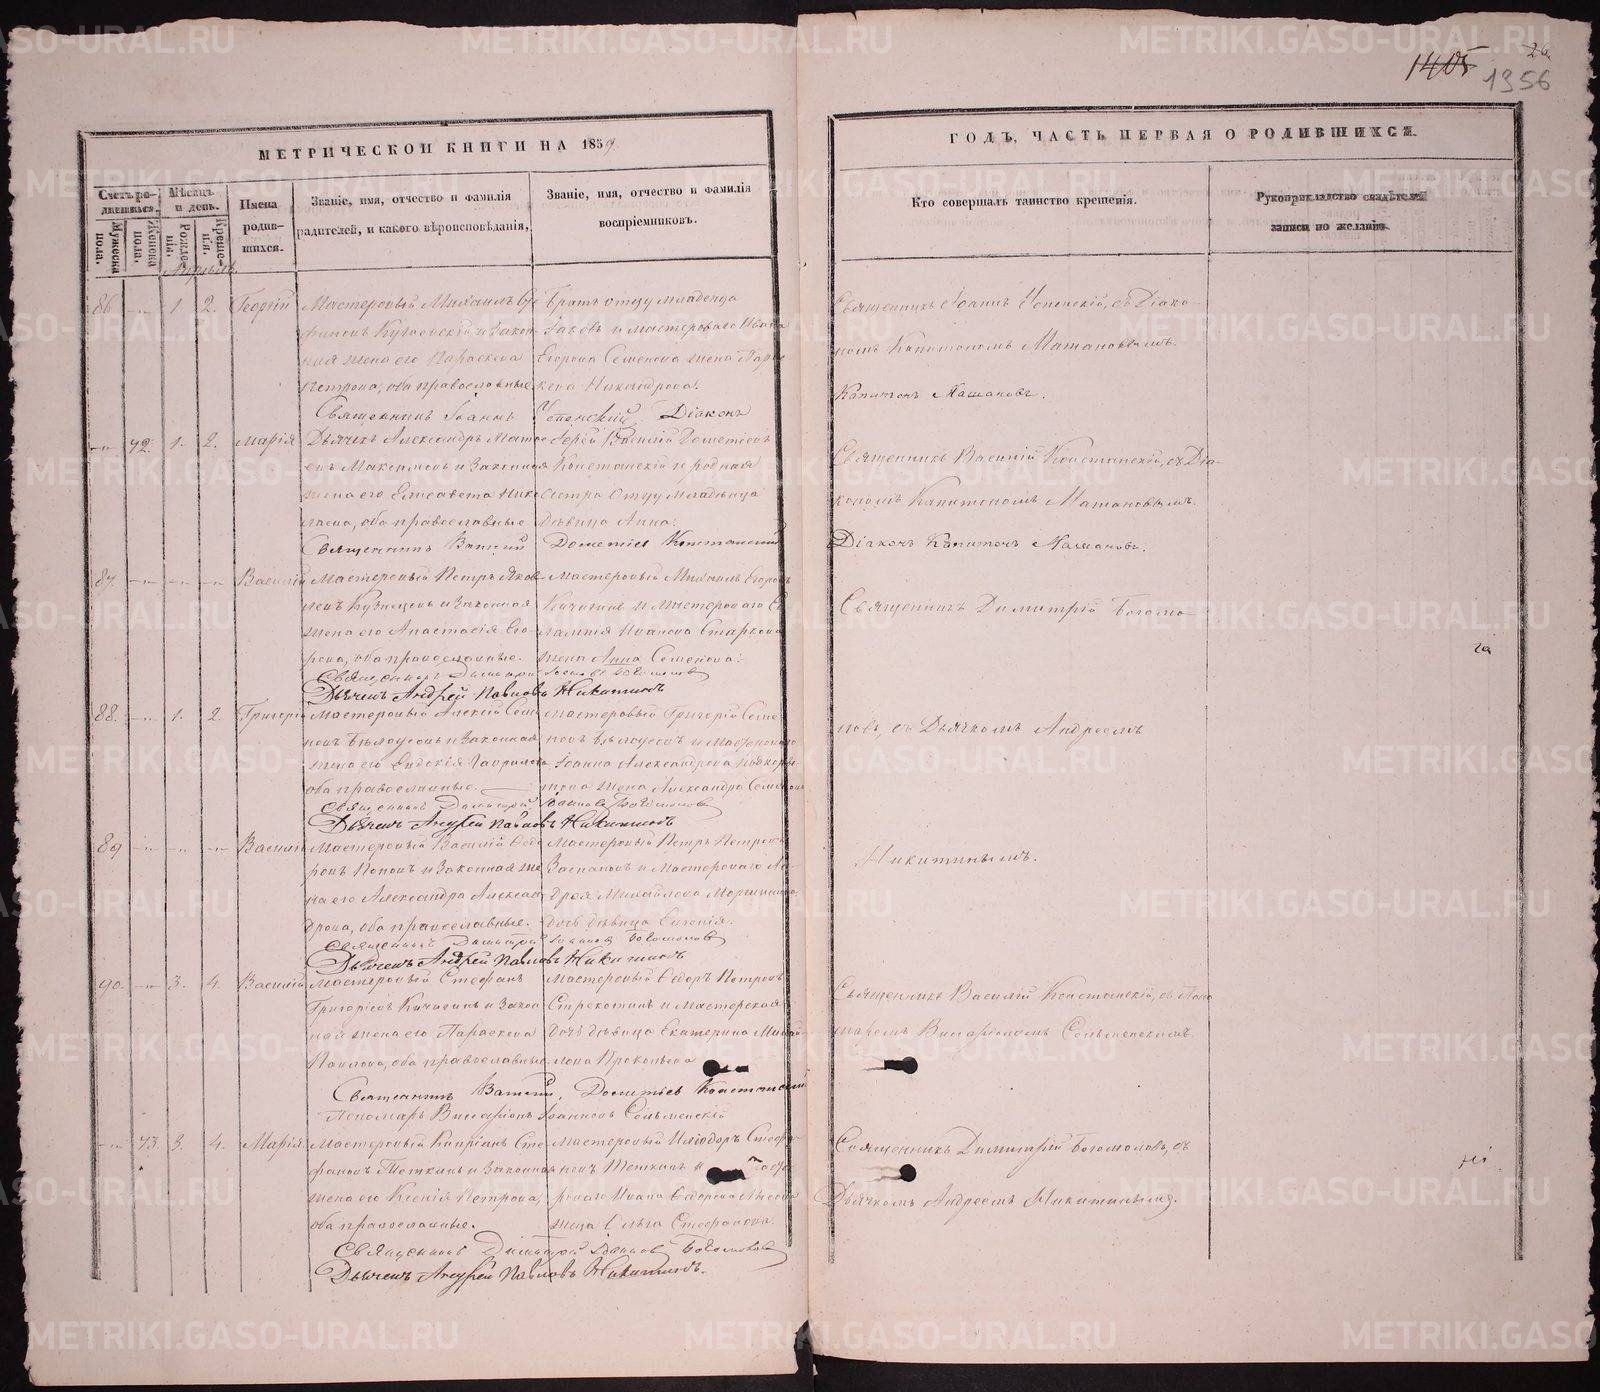 1405
1356
МЕТРИЧЕСКОЙ КНИГИ НА 1859
ГОДЪ, ЧАСТЬ ПЕРВАЯ О РОДИВШИХСЯ.
Счетъ ро-
дившихся.
Мужеска
пола.
Женска
пола.
Мѣсяцъ
и день.
Рожде-
нія.
Креще-
нія.
Имена
родив-
шихся.
Званіе, имя, отчество и фамилія
родителей, и какого вѣроисповѣданія,
Званіе, имя, отчество и фамилія
воспріемниковъ.
Кто совершалъ таинство крещенія.
Рукоприкладство свидѣтелей
записи по желанію.
86 1. 2. Георгій
Мастеровый Михаилъ
и закон-
ная жена его Параскева
Петрова, оба православные
Братъ отцу младенца
Іаковъ и мастероваго Ивана
Егорова Семенова жена Парас-
кева Никандрова.
Священникъ Іоаннъ Успенскій, съ Діако-
номъ Капитономъ Машановымъ.
Капитонъ Машановъ.
Священникъ Іоаннъ Успенскій Діаконъ
72. 1. 2. Марія
Дьячекъ Александръ Матве-
евъ Максимовъ и законная
жена его Елисавета Нико-
лаева, оба православные
Іерей Василій Дометіевъ
Констанскій и родная
сестра отцу младенца
дѣвица Анна.
Священникъ Василій Констанскій, съ Діа-
кономъ Капитономъ Машановымъ.
Діаконъ Капитонъ Машановъ.
Священникъ Василій Дометіев Констанский
87. Василій
Мастеровый Петръ Яков-
левъ Кузнецовъ и законная
жена его Анастасія Его-
рова, оба православные.
Мастеровый Михаилъ Егоровъ
Качагинъ и мастероваго Ев-
лампія Иванова Старкова
жена Анна Семенова.
Священникъ Димитрій Богомо-
Священникъ Димитрій Іоанновъ Богомоловъ
Дьячекъ Андрей Павловъ Никитинъ
88. 1. 2. Григорій
Мастеровый Алексій Семе-
новъ Бѣлоусовъ и законная
жена его Евдокія Гаврилова
оба православные.
Мастеровый Григорій Семе-
новъ Бѣлоусовъ и мастероваго
Іоанна Александрова
жена Александра Семенова
ловъ, съ Дьячкомъ Андреемъ
Священникъ Димитрій Іоанновъ Богомоловъ
Дьячекъ Андрей Павловъ Никитинъ
89 Василій
Мастеровый Василій Ѳедо-
ровъ Поповъ и законная же-
на его Александра Алексан-
дрова, оба православные.
Мастеровый Петръ Петровъ
и мастероваго Ан-
дрея Михайлова
дочь дѣвица Евгенія.
Никитинымъ.
Священникъ Димитрій Іоанновъ Богомоловъ
Дьячекъ Андрей Павловъ Никитинъ
90. 3. 4. Василій
Мастеровый Стефанъ
Григорьевъ Качагинъ и закон-
ная жена его Параскева
Павлова, оба православные
Мастеровый Ѳедоръ Петровъ
Стрекотинъ и мастерская
дочь дѣвица Екатерина Михай-
лова Прокопьева
Священникъ Василій Констанскій, съ Поно-
маремъ Виссаріономъ Сельменскимъ
Священникъ Василій Дометіев Констанский
Пономарь Виссаріонъ Іоанновъ Сельменскій
73. 3. 4. Марія
Мастеровый Кипріанъ Сте-
фановъ Теткинъ и законная
жена его Ксенія Петрова,
оба православные.
Мастеровый Иліодоръ Стефа-
новъ Теткинъ и
роваго Ивана Ѳедорова
жена Ольга Стефанова.
Священникъ Димитрій Богомоловъ, съ
Дьячкомъ Андреемъ Никитинымъ.
Священникъ Димитрій Іоанновъ Богомоловъ
Дьячекъ Андрей Павловъ Никитинъ.
METRIKI.GASO-URAL.RU